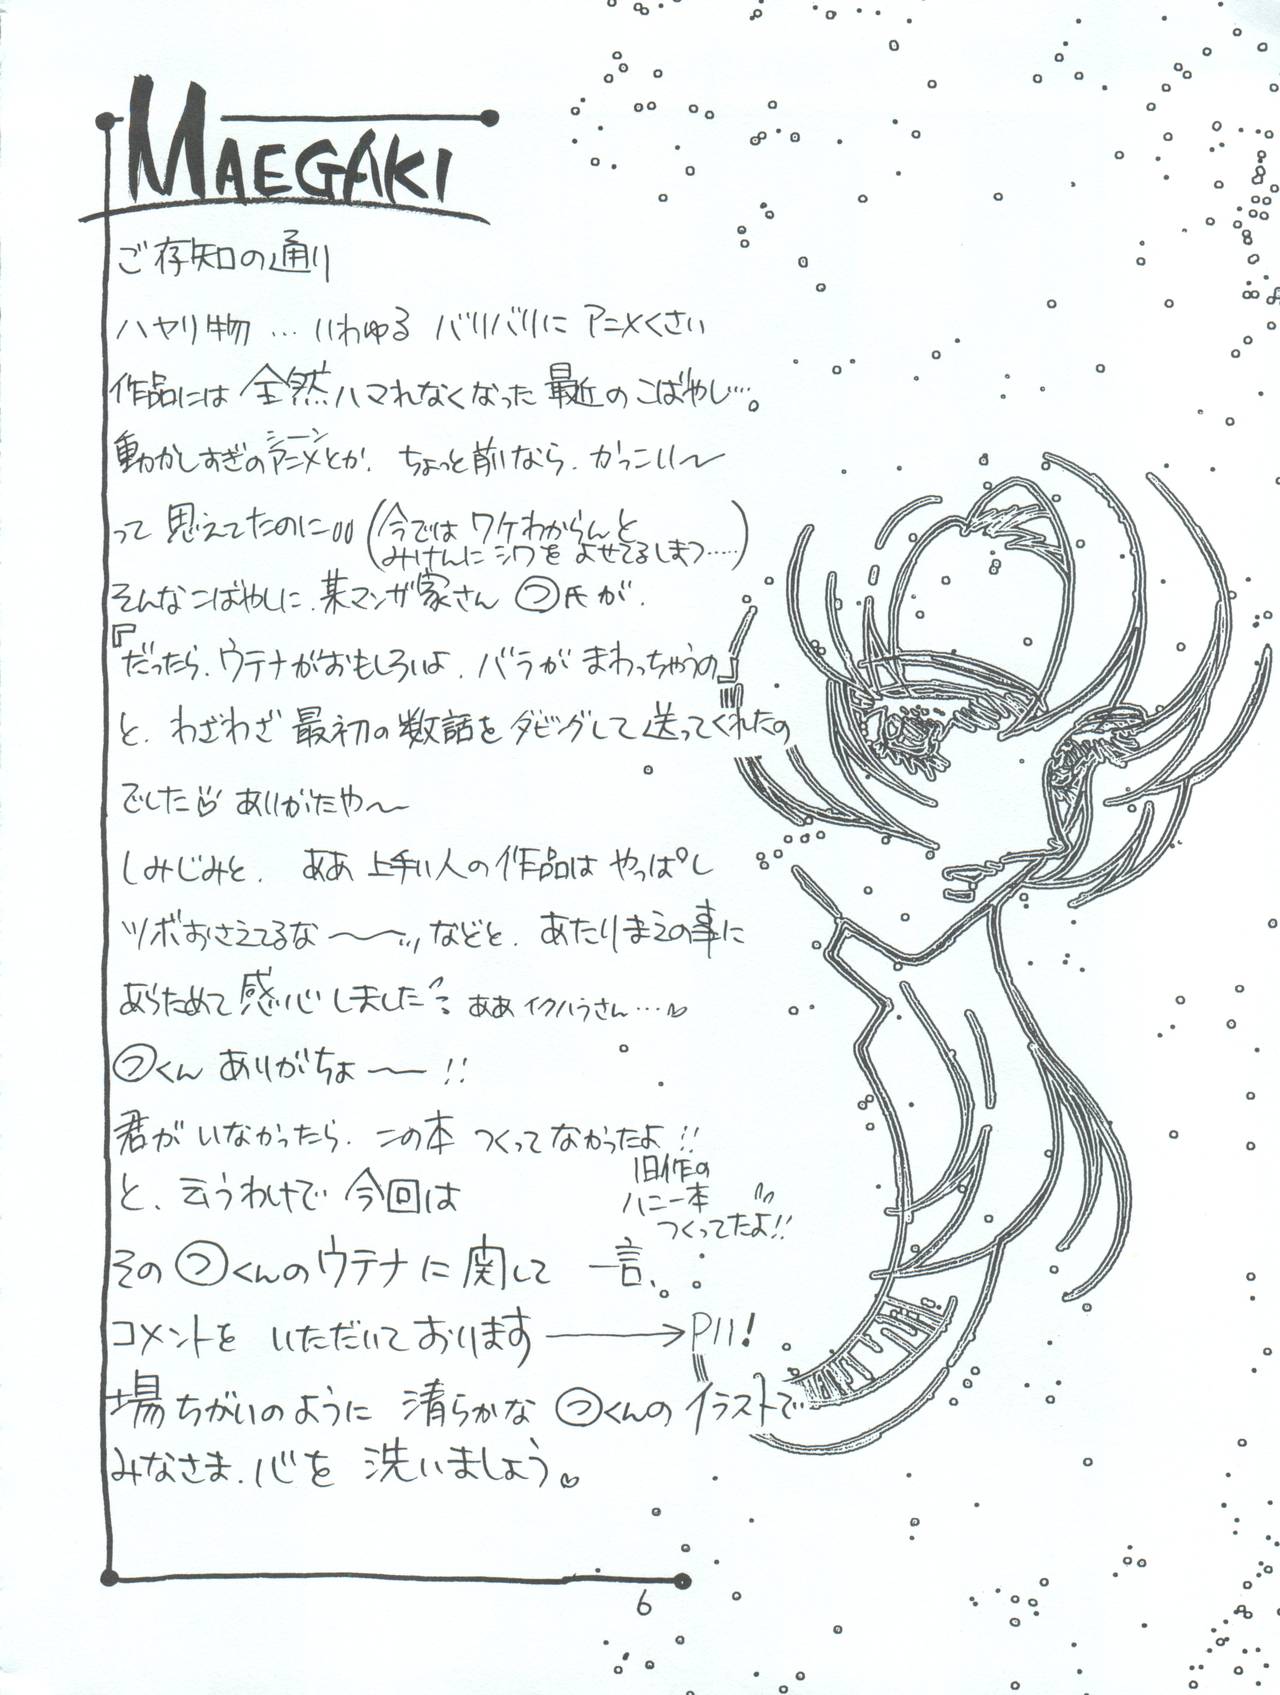 MAEGAKI
ご存知の通り
ハヤリ物…いわゆる バリバリに アニメくさい
作品には 全然ハマれなくなった 最近の こばやし…。
動かしすぎのアニメシーンとか、ちょっと前なら、かっこいい〜
って 思えてたのに。。(今では ワケわからんと
みけんに シワを よせてるしまつ……)
そんなこばやしに、某マンガ家さん つ氏が、
『だったら、ウテナがおもしろいよ、バラが まわっちゃうの』
と、わざわざ 最初の数話を ダビングして 送ってくれたの
でした♡ ありがたや〜
しみじみと、 ああ 上手い人の 作品は やっぱし
ツボおさえてるな〜〜… などと、あたりまえの事に
あらためて 感心しました ああ イクハラさん…♡
つくん ありがちょ〜 !!
君が いなかったら、この本 つくって なかったよ!!
旧作の
ハニー本
つくってたよ!!
と、云うわけで 今回は
その つくんの ウテナ に 関して 一言、
コメントを いただいて おります → P11!
場ちがいのように 清らかな つくんの イラストで
みなさま、心を 洗いましょう。♡
6